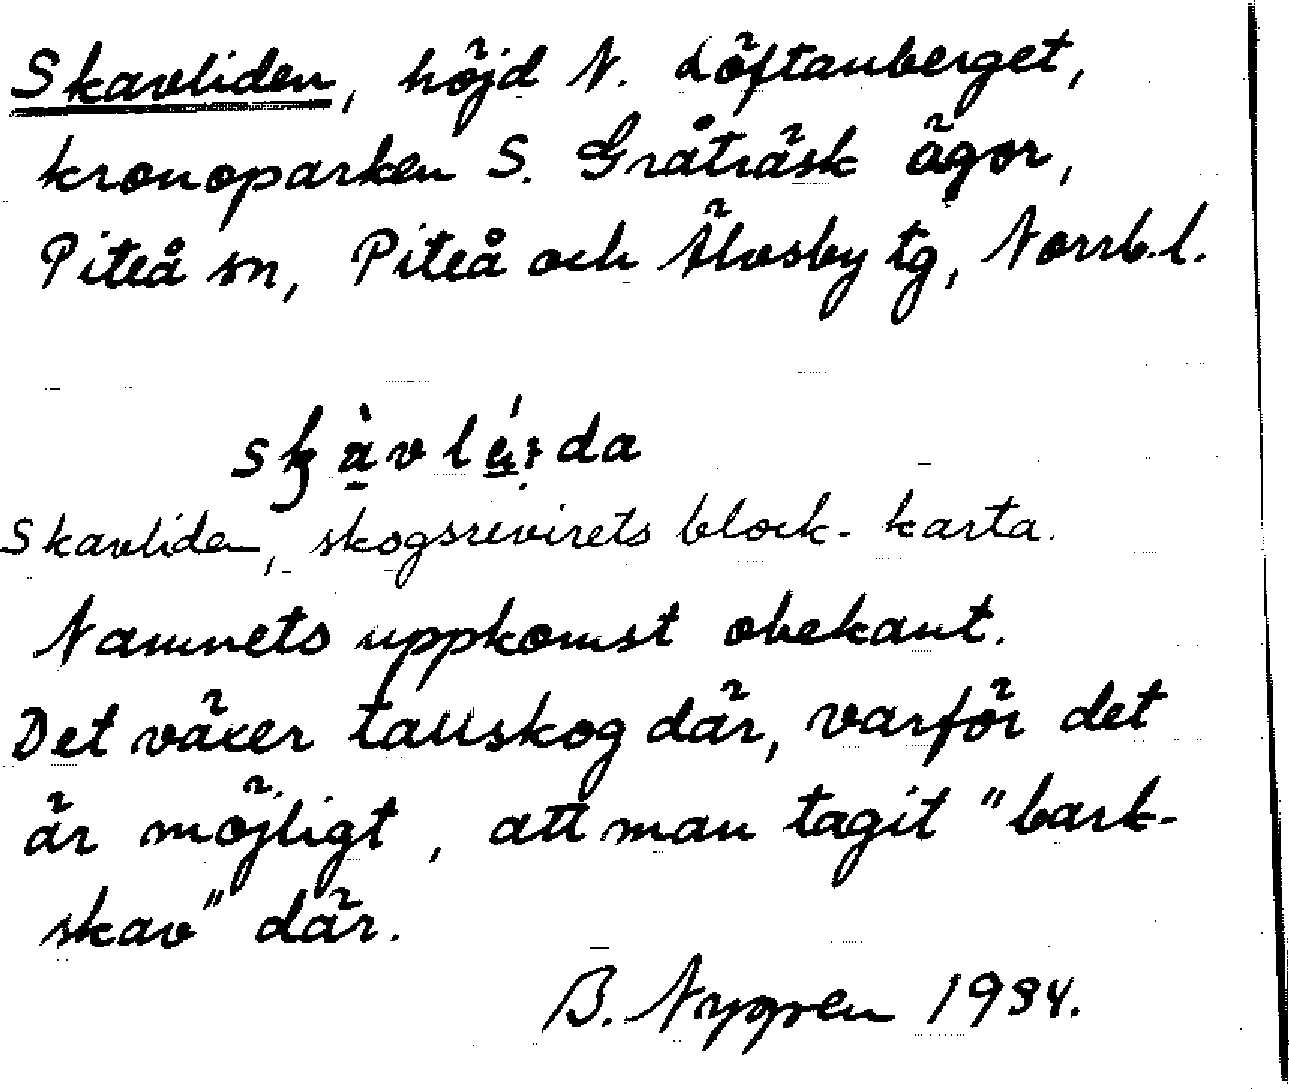 Skavliden, höjd N. Löftanberget,
kronoparken S. Gråträsk ägor,
Piteå sn, Piteå och Älvsby tg, Norrb.l.
Skavliden, skogsrevirets block-karta.
Namnets uppkomst obekant.
Det växer tallskog där, varför det
är möjligt, att man tagit "bark-
skav" där.
B. Nygren 1934.